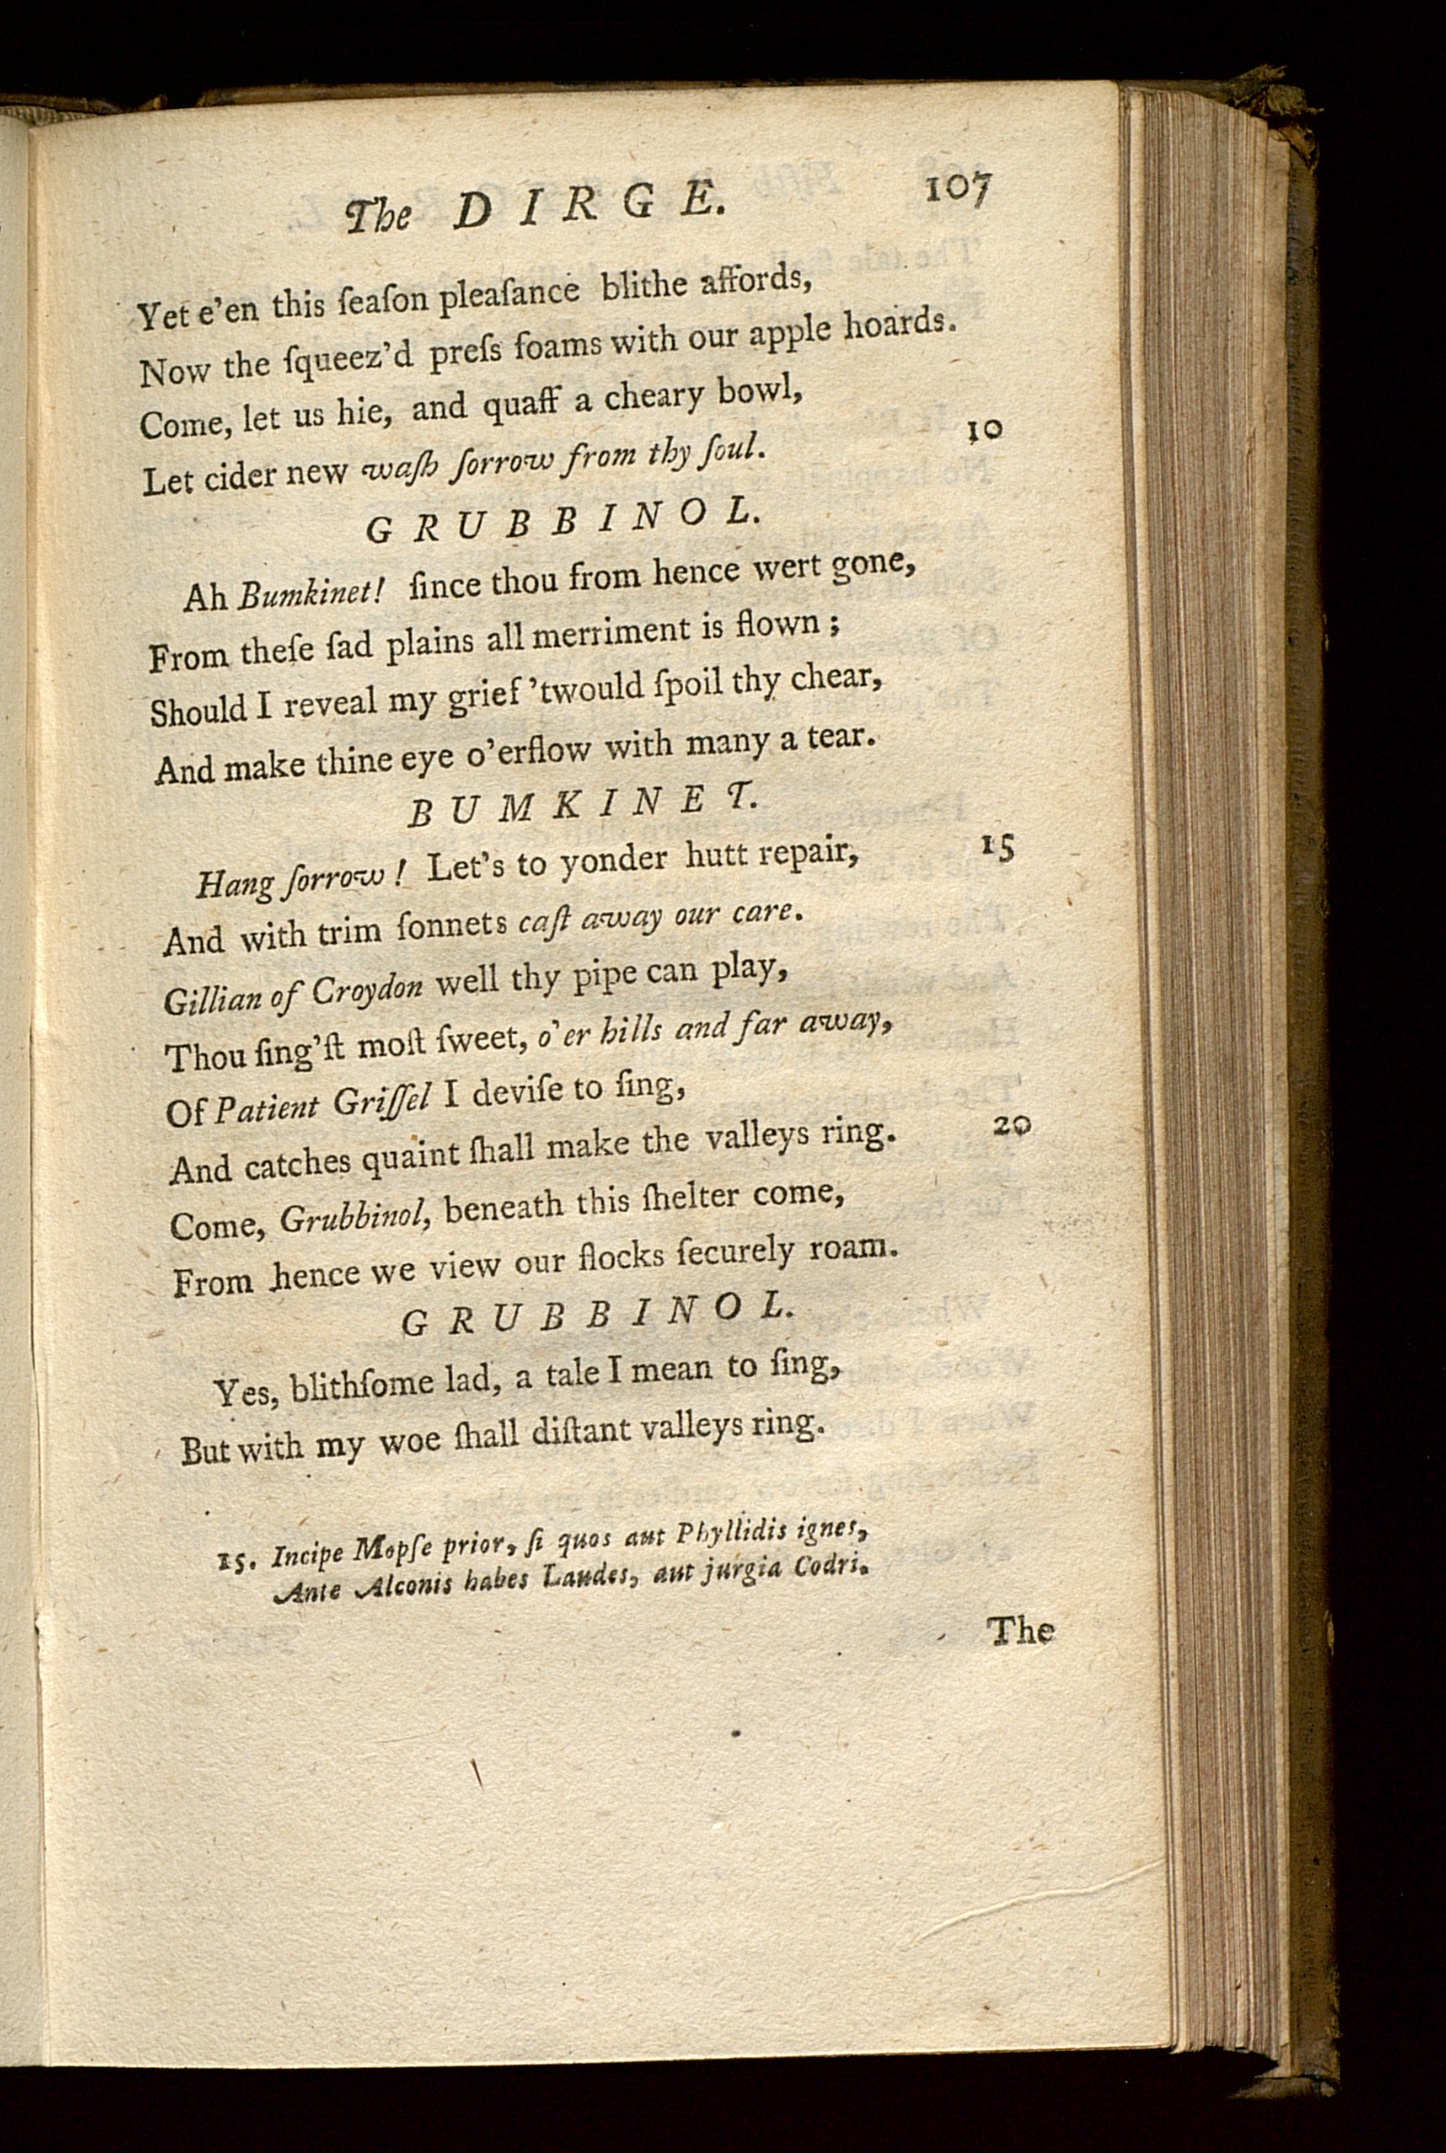 The DIRGE. 107
Yet e'en this ſeaſon pleaſance blithe affords,
Now the ſqueez'd preſs foams with our apple hoards.
Come, let us hie, and quaff a cheary bowl,
Let cider new waſh ſorrow from thy ſoul. 10
GRUBBINOL.
Ah Bumkinet! ſince thou from hence wert gone,
From theſe ſad plains all merriment is flown;
Should I reveal my grief 'twould ſpoil thy chear,
And make thine eye o'erflow with many a tear.
BUMKINET.
Hang ſorrow! Let's to yonder hutt repair, 15
And with trim ſonnets caſt away our care.
Gillian of Croydon well thy pipe can play,
Thou ſing'ſt moſt ſweet, o'er hills and far away,
Of Patient Griſſel I deviſe to ſing,
And catches quaint ſhall make the valleys ring. 20
Come, Grubbinol, beneath this ſhelter come,
From hence we view our flocks ſecurely roam.
GRUBBINOL.
Yes, blithſome lad, a tale I mean to ſing,
But with my woe ſhall diſtant valleys ring.
15. Incipe Mopſe prior, ſi quos aut Phyllidis ignes,
Ante Alconis habes Laudes, aut jurgia Codri.
The